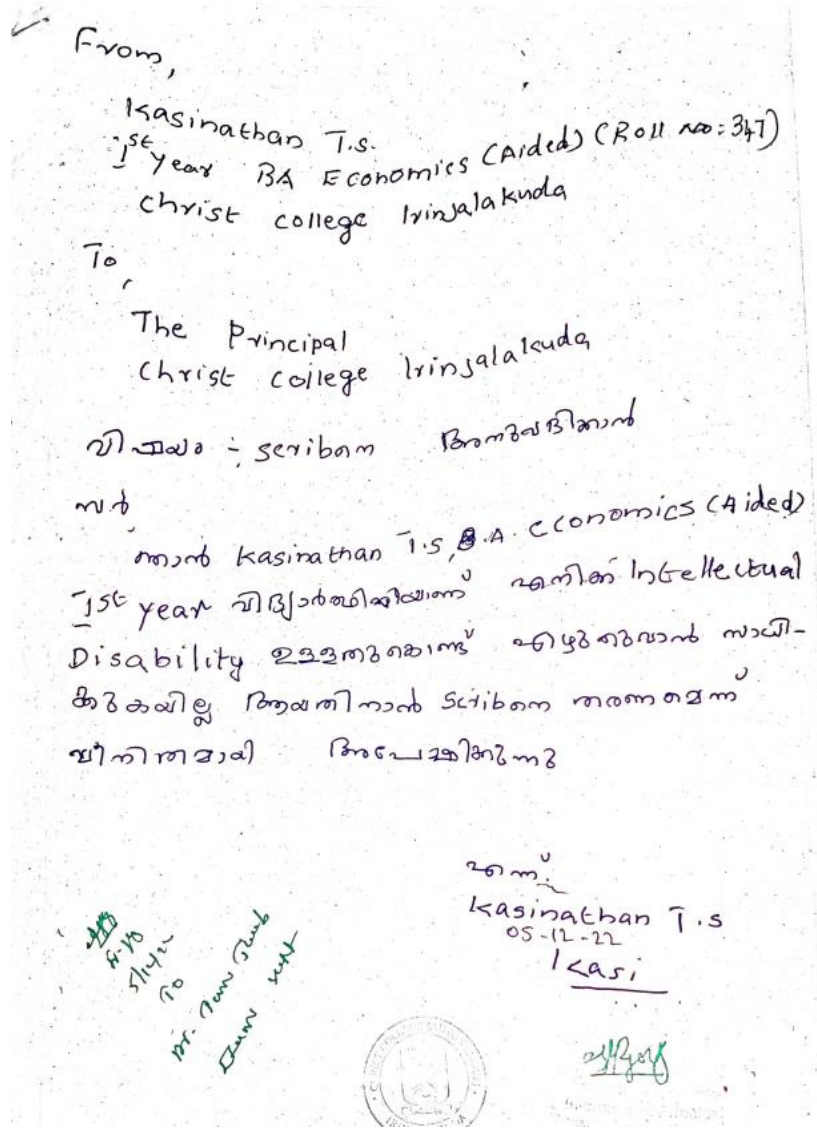 From,
Kasinathan T.S.
1st year BA Economics (Aided) (Roll no: 347)
Christ college Irinjalakuda
To,
The Principal
Christ college Irinjalakuda
വിഷയം :- scribനെ അനുവദിക്കാൻ
സർ,
ഞാൻ Kasinathan T.S, B.A. Economics (Aided)
1st year വിദ്യാർത്ഥിയാണ് എനിക്ക് Intellectual
Disability ഉള്ളതുകൊണ്ട് എഴുതുവാൻ സാധി-
ക്കുകയില്ല ആയതിനാൽ Scribനെ തരണമെന്ന്
വിനിതമായി അപേക്ഷിക്കുന്നു
എന്ന്,
Kasinathan T.S
05-12-22
Kasi
5/12/22
TO
Dr.